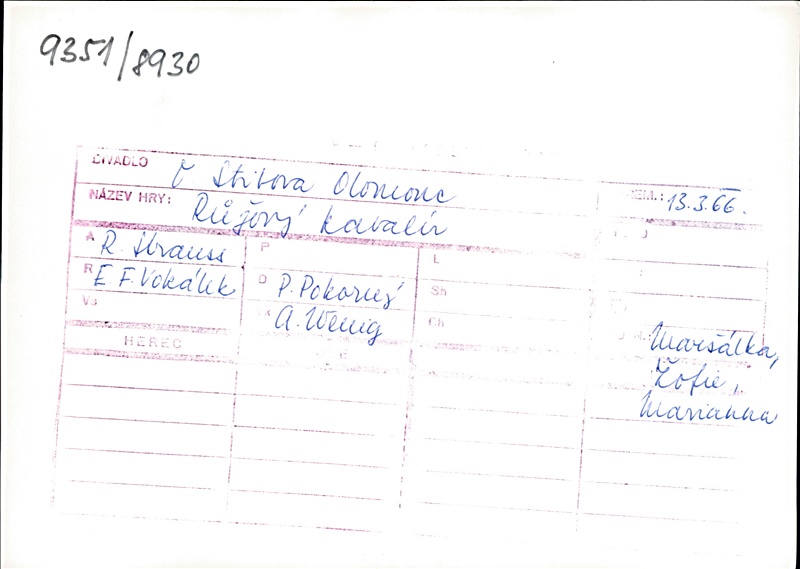 9351/8930
DIVADLO O Stibora Olomouc
REM.: 13.3.66.
NÁZEV HRY: Růžový kavalír
A R. Strauss P L
R E F. Vokálek D P. Pokorný Sh
Vs A. Wenig Ch
HEREC
Maršálka,
Žofie,
Marianna